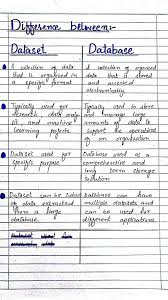 Difference between:-
Dataset
Database
A collection of data
that is organised in
a specific format
A collection of organised
data that is stored
and accessed
electronically
Typically used for
research, data analy
sis, and machine
learning projects
Typically used to store
and manage large
amounts of data to
support the operations
of an organisation
Dataset used for
specific purpose
Database used as a
comprehensive and
long term storage
solution
Dataset can be subset
of data extracted
from a large
database.
Database can have
multiple datasets and
can be used for
different applications